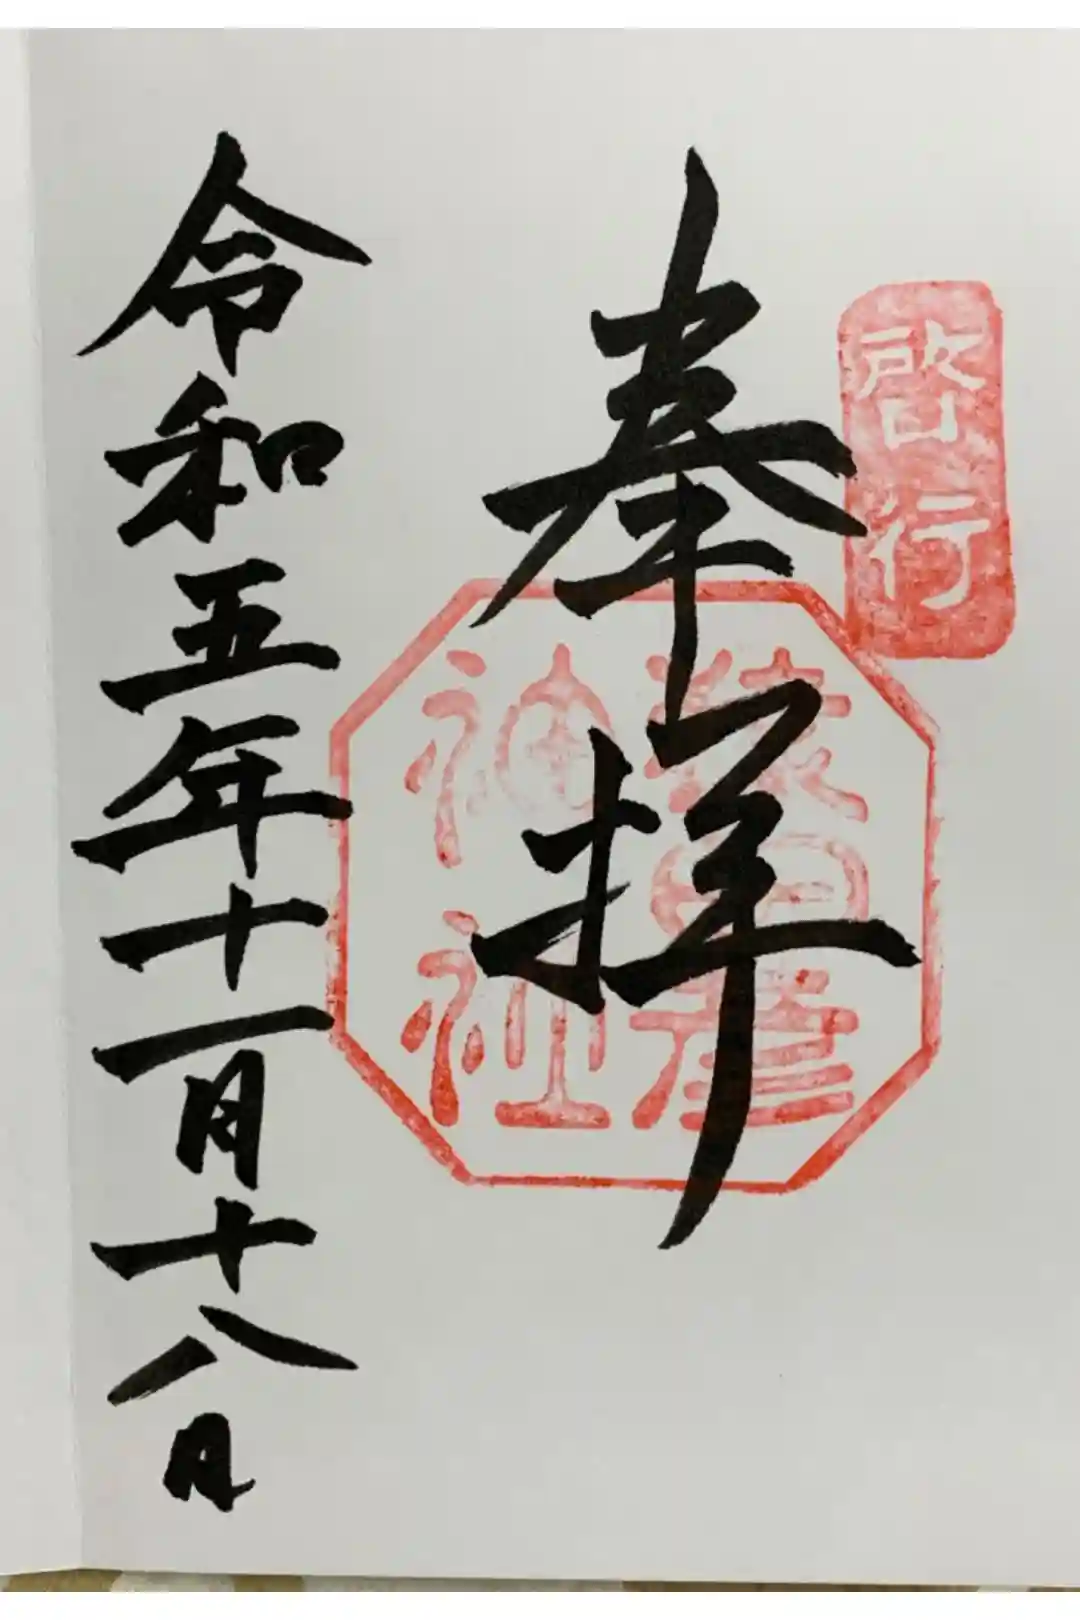 啓行
奉拝
猿田彦
神社
令和五年十一月十八日